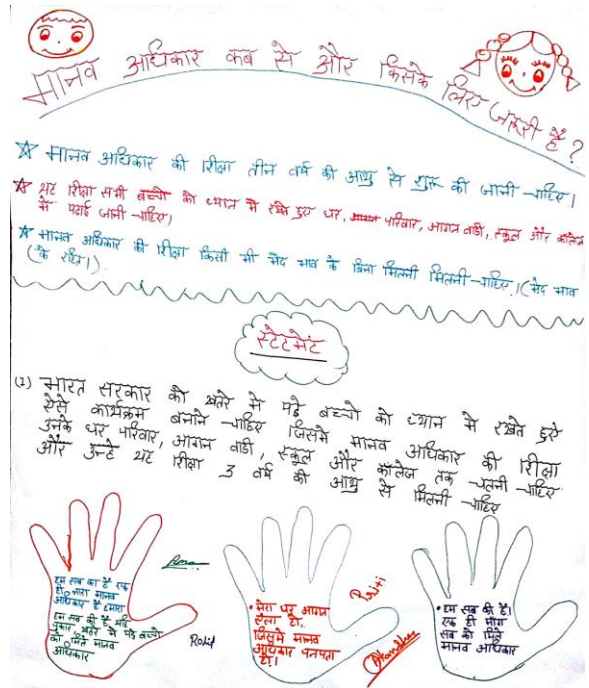 मानव अधिकार कब से और किसके लिए जरुरी है?
मानव अधिकार की शिक्षा तीन वर्ष की आयु से शुरू की जानी चाहिए।
यह शिक्षा सभी बच्चो को ध्यान मे रखते हुए घर, परिवार, आगन वाडी, स्कूल और कॉलेज
में पढाई जानी चाहिए।
मानव अधिकार की शिक्षा किसी भी भेद भाव के बिना मिलनी मिलनी चाहिए।(भेद भाव
के रहित।)
स्टेटमेंट
(1) भारत सरकार को खतरे मे पडे बच्चो को ध्यान मे रखते हुऐ
ऐसे कार्यक्रम बनाने चाहिए जिसमे मानव अधिकार की शिक्षा
उनके घर परिवार, आगन वाडी, स्कूल और कॉलेज तक चलनी चाहिए
और उन्हे यह शिक्षा 3 वर्ष की आयु से मिलनी चाहिए
हम सब का है एक
ही नारा मानव
अधिकार है हमारा
हम सब की है यही
पुकार, खतरे मे पडे बच्चो
को मिले मानव
अधिकार
Rohit
• मेरा घर आगन
ऐसा हो,
जिसमे मानव
अधिकार पनपता
हो।
Priti
Akanksha
• हम सब की है।
एक ही मांग
सब को मिले
मानव अधिकार